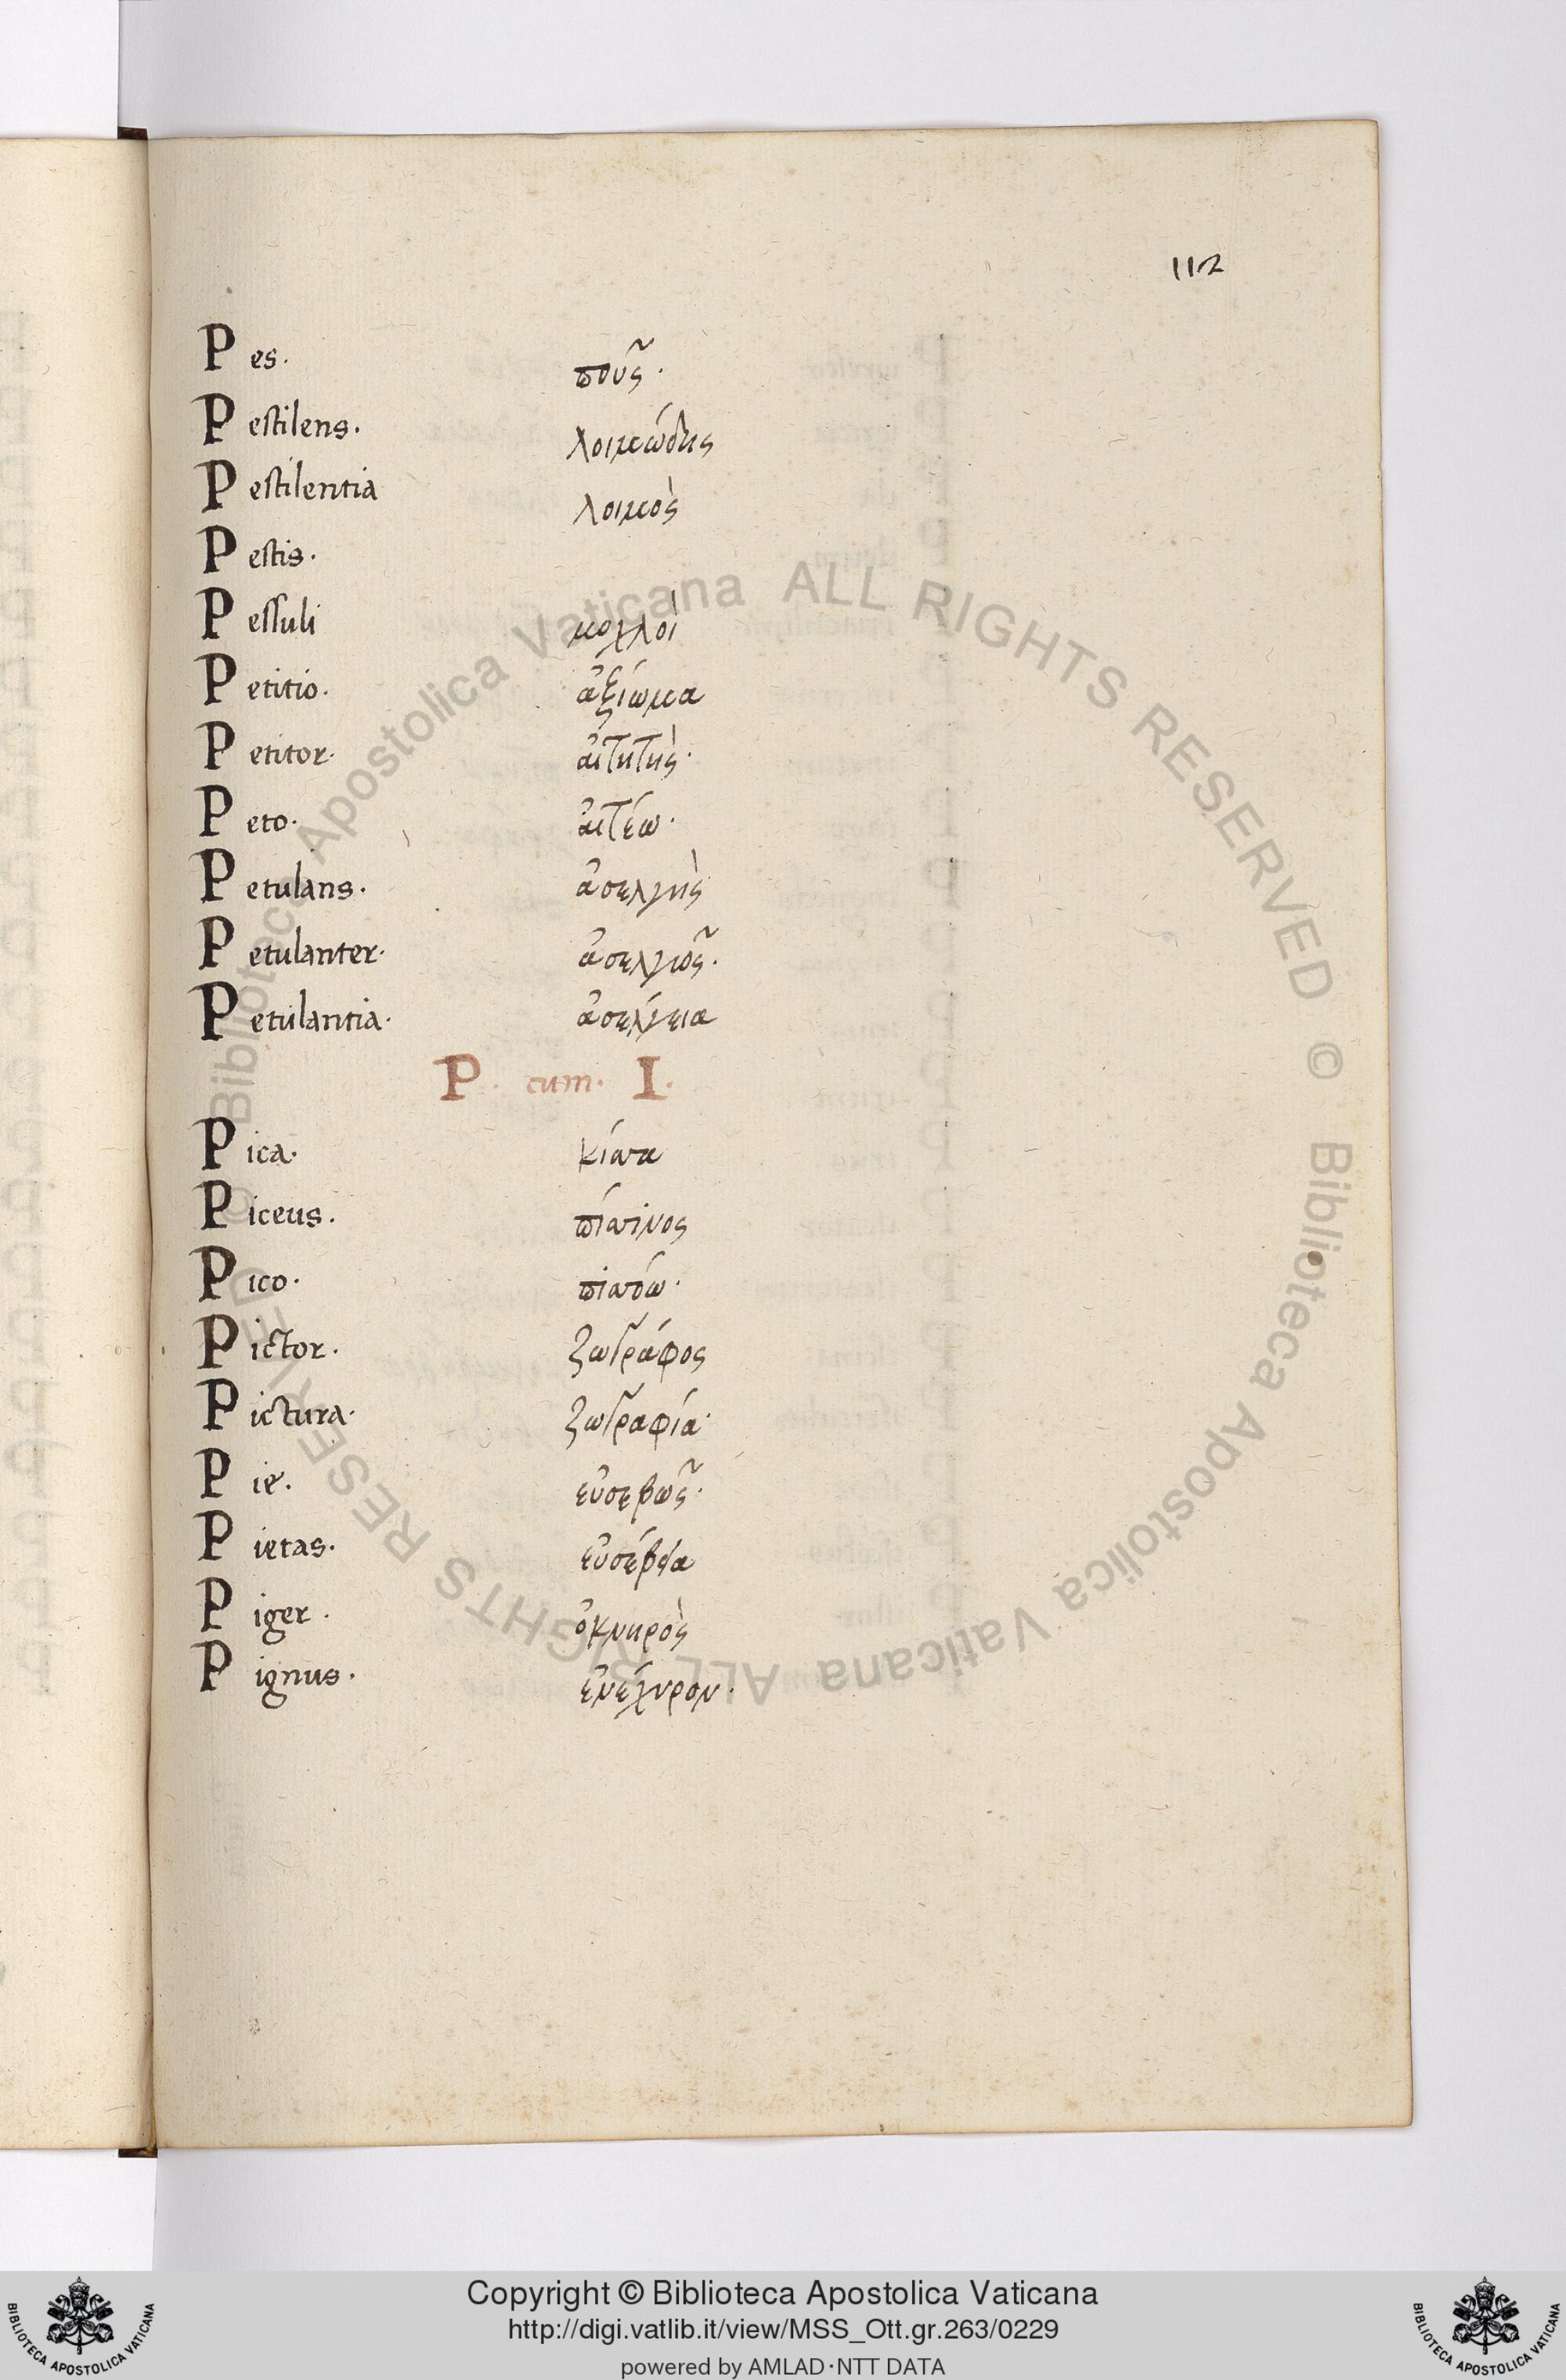 112
Pes. ποῦς.
Pestilens. λοιμώδης
Pestilentia λοιμὸς
Pestis.
Pessuli μοχλοὶ
Petitio. ἀξίωμα
Petitor. αἰτητὴς.
Peto. αἰτέω.
Petulans. ἀσελγὴς
Petulanter. ἀσελγιο͂ς.
Petulantia. ἀσελγεια
P. cum. I.
Pica. κίττα
Piceus. πίττινος
Pico. πιττόω.
Pictor. ζωγράφος
Pictura. ζωγραφία.
Pie. εὐσεβῶς.
Pietas. εὐσέβεια
Piger. ὀκνηρὸς
Pignus. ἐνέχυρον.
© Biblioteca Apostolica Vaticana ALL RIGHTS RESERVED © Biblioteca Apostolica Vaticana ALL RIGHTS RESERVED
Copyright © Biblioteca Apostolica Vaticana
http://digi.vatlib.it/view/MSS_Ott.gr.263/0229
powered by AMLAD·NTT DATA
BIBLIOTECA APOSTOLICA VATICANA
BIBLIOTECA APOSTOLICA VATICANA